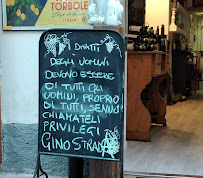 TORBOLE
ITALIA
I DIRITTI
DEGLI UOMINI
DEVONO ESSERE
DI TUTTI GLI
UOMINI, PROPRIO
DI TUTTI, SENNÒ
CHIAMATELI
PRIVILEGI
GINO STRADA